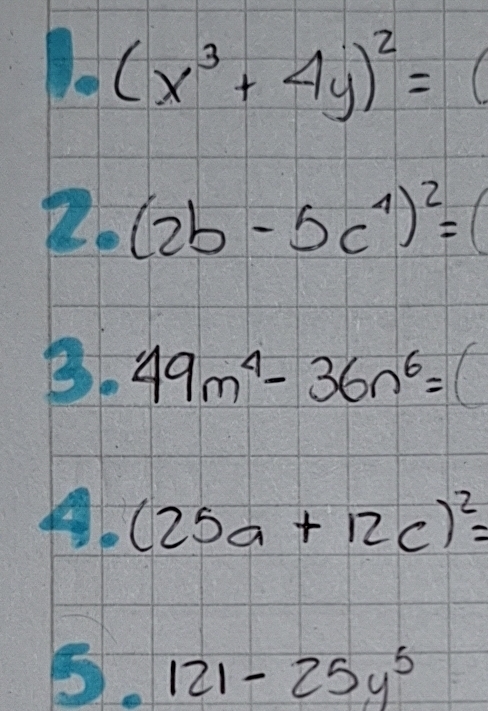 1. (x³ + 4y)² = (
2. (2b - 5c⁴)² = (
3. 49m⁴ - 36n⁶ = (
4. (25a + 12c)² =
5. 121 - 25y⁵